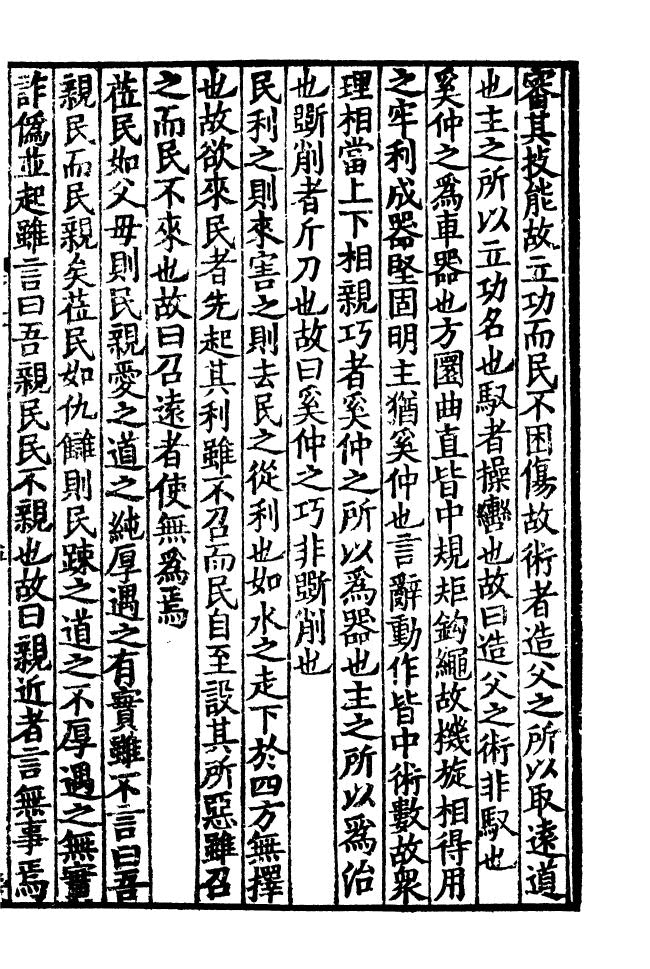 審其技能故立功而民不困傷故術者造父之所以取遠道
也主之所以立功名也馭者操轡也故曰造父之術非馭也
奚仲之爲車器也方圜曲直皆中規矩鈎繩故機旋相得用
之牢利成器堅固明主猶奚仲也言辭動作皆中術數故衆
理相當上下相親巧者奚仲之所以爲器也主之所以爲治
也斲削者斤刀也故曰奚仲之巧非斲削也
民利之則來害之則去民之從利也如水之走下於四方無擇
也故欲來民者先起其利雖不召而民自至設其所惡雖召
之而民不來也故曰召遠者使無爲焉
莅民如父母則民親愛之道之純厚遇之有實雖不言曰吾
親民而民親矣莅民如仇讎則民踈之道之不厚遇之無實
詐僞並起雖言曰吾親民民不親也故曰親近者言無事焉